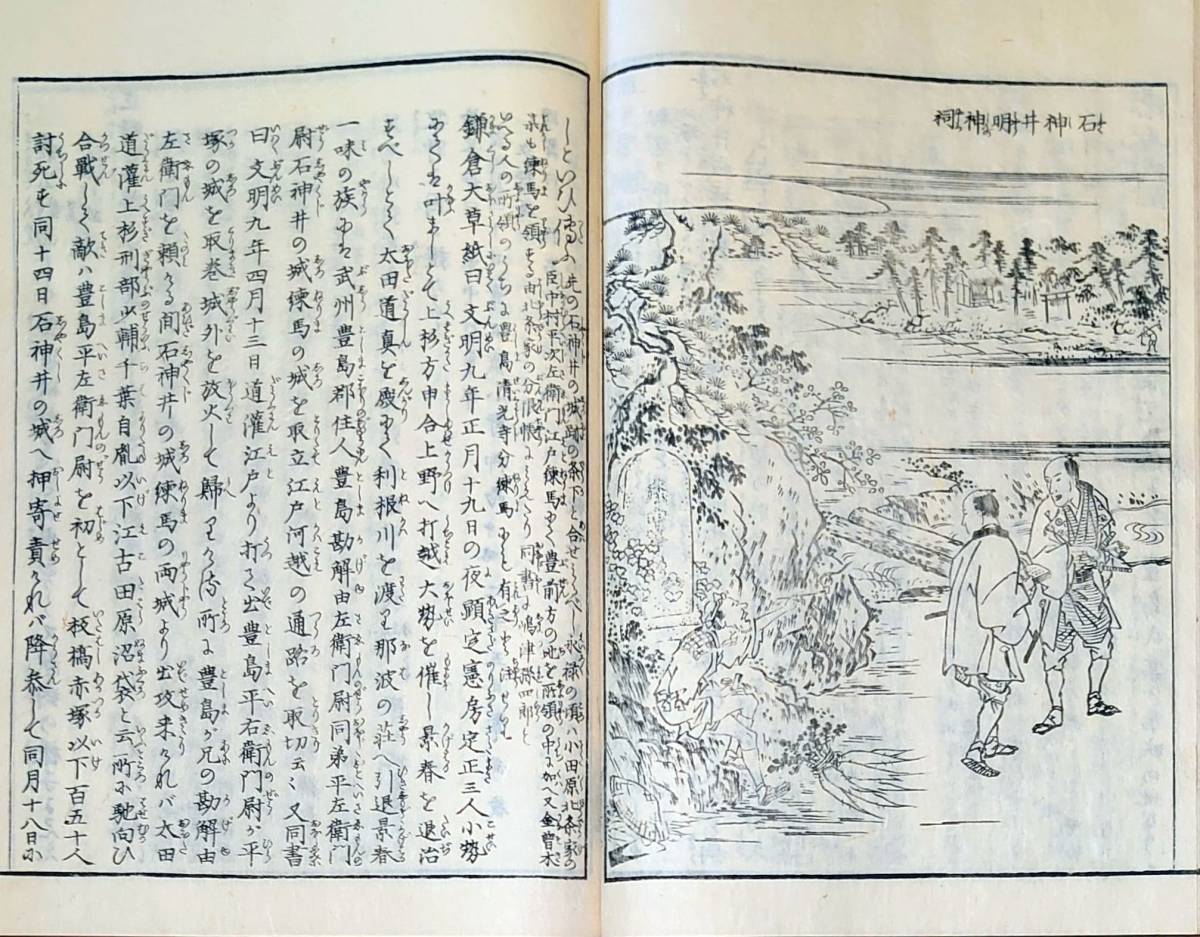 石神井明神祠
しといひ傳ふ 先の石神井の城跡の条下と合せみるべし 永禄の頃ハ小田原北条家の
臣中村平次左衛門江戸練馬にて豊前方の地を所領の中に加へ又金曾木
鎌倉大草紙曰文明九年正月十九の夜顕定憲房定正三人小勢
にては叶ましとて上杉方申合上野へ打越大勢を催し景春を退治
すべしとて太田道真を慶にて利根川を渡り那波の荘へ引退景春
一味の族には武州豊島郡住人豊島勘解由左衛門尉同弟平左衛門
尉石神井の城練馬の城を取立江戸河越の通路を取切云々又同書
曰文明九年四月十三日道灌江戸より打て出豊島平右衛門尉か平
塚の城を取巻城外を放火して歸りける所に豊島が兄の勘解由
左衛門を頼ける間石神井の城練馬の両城より出攻来けれバ太田
道灌上杉刑部少輔千葉自胤以下江古田原沼袋と云所に馳向ひ
合戦して敵ハ豊島平左衛門尉を初として板橋赤塚以下百五十人
討死す同十四日石神井の城へ押寄責けれバ降参して同月十八日に